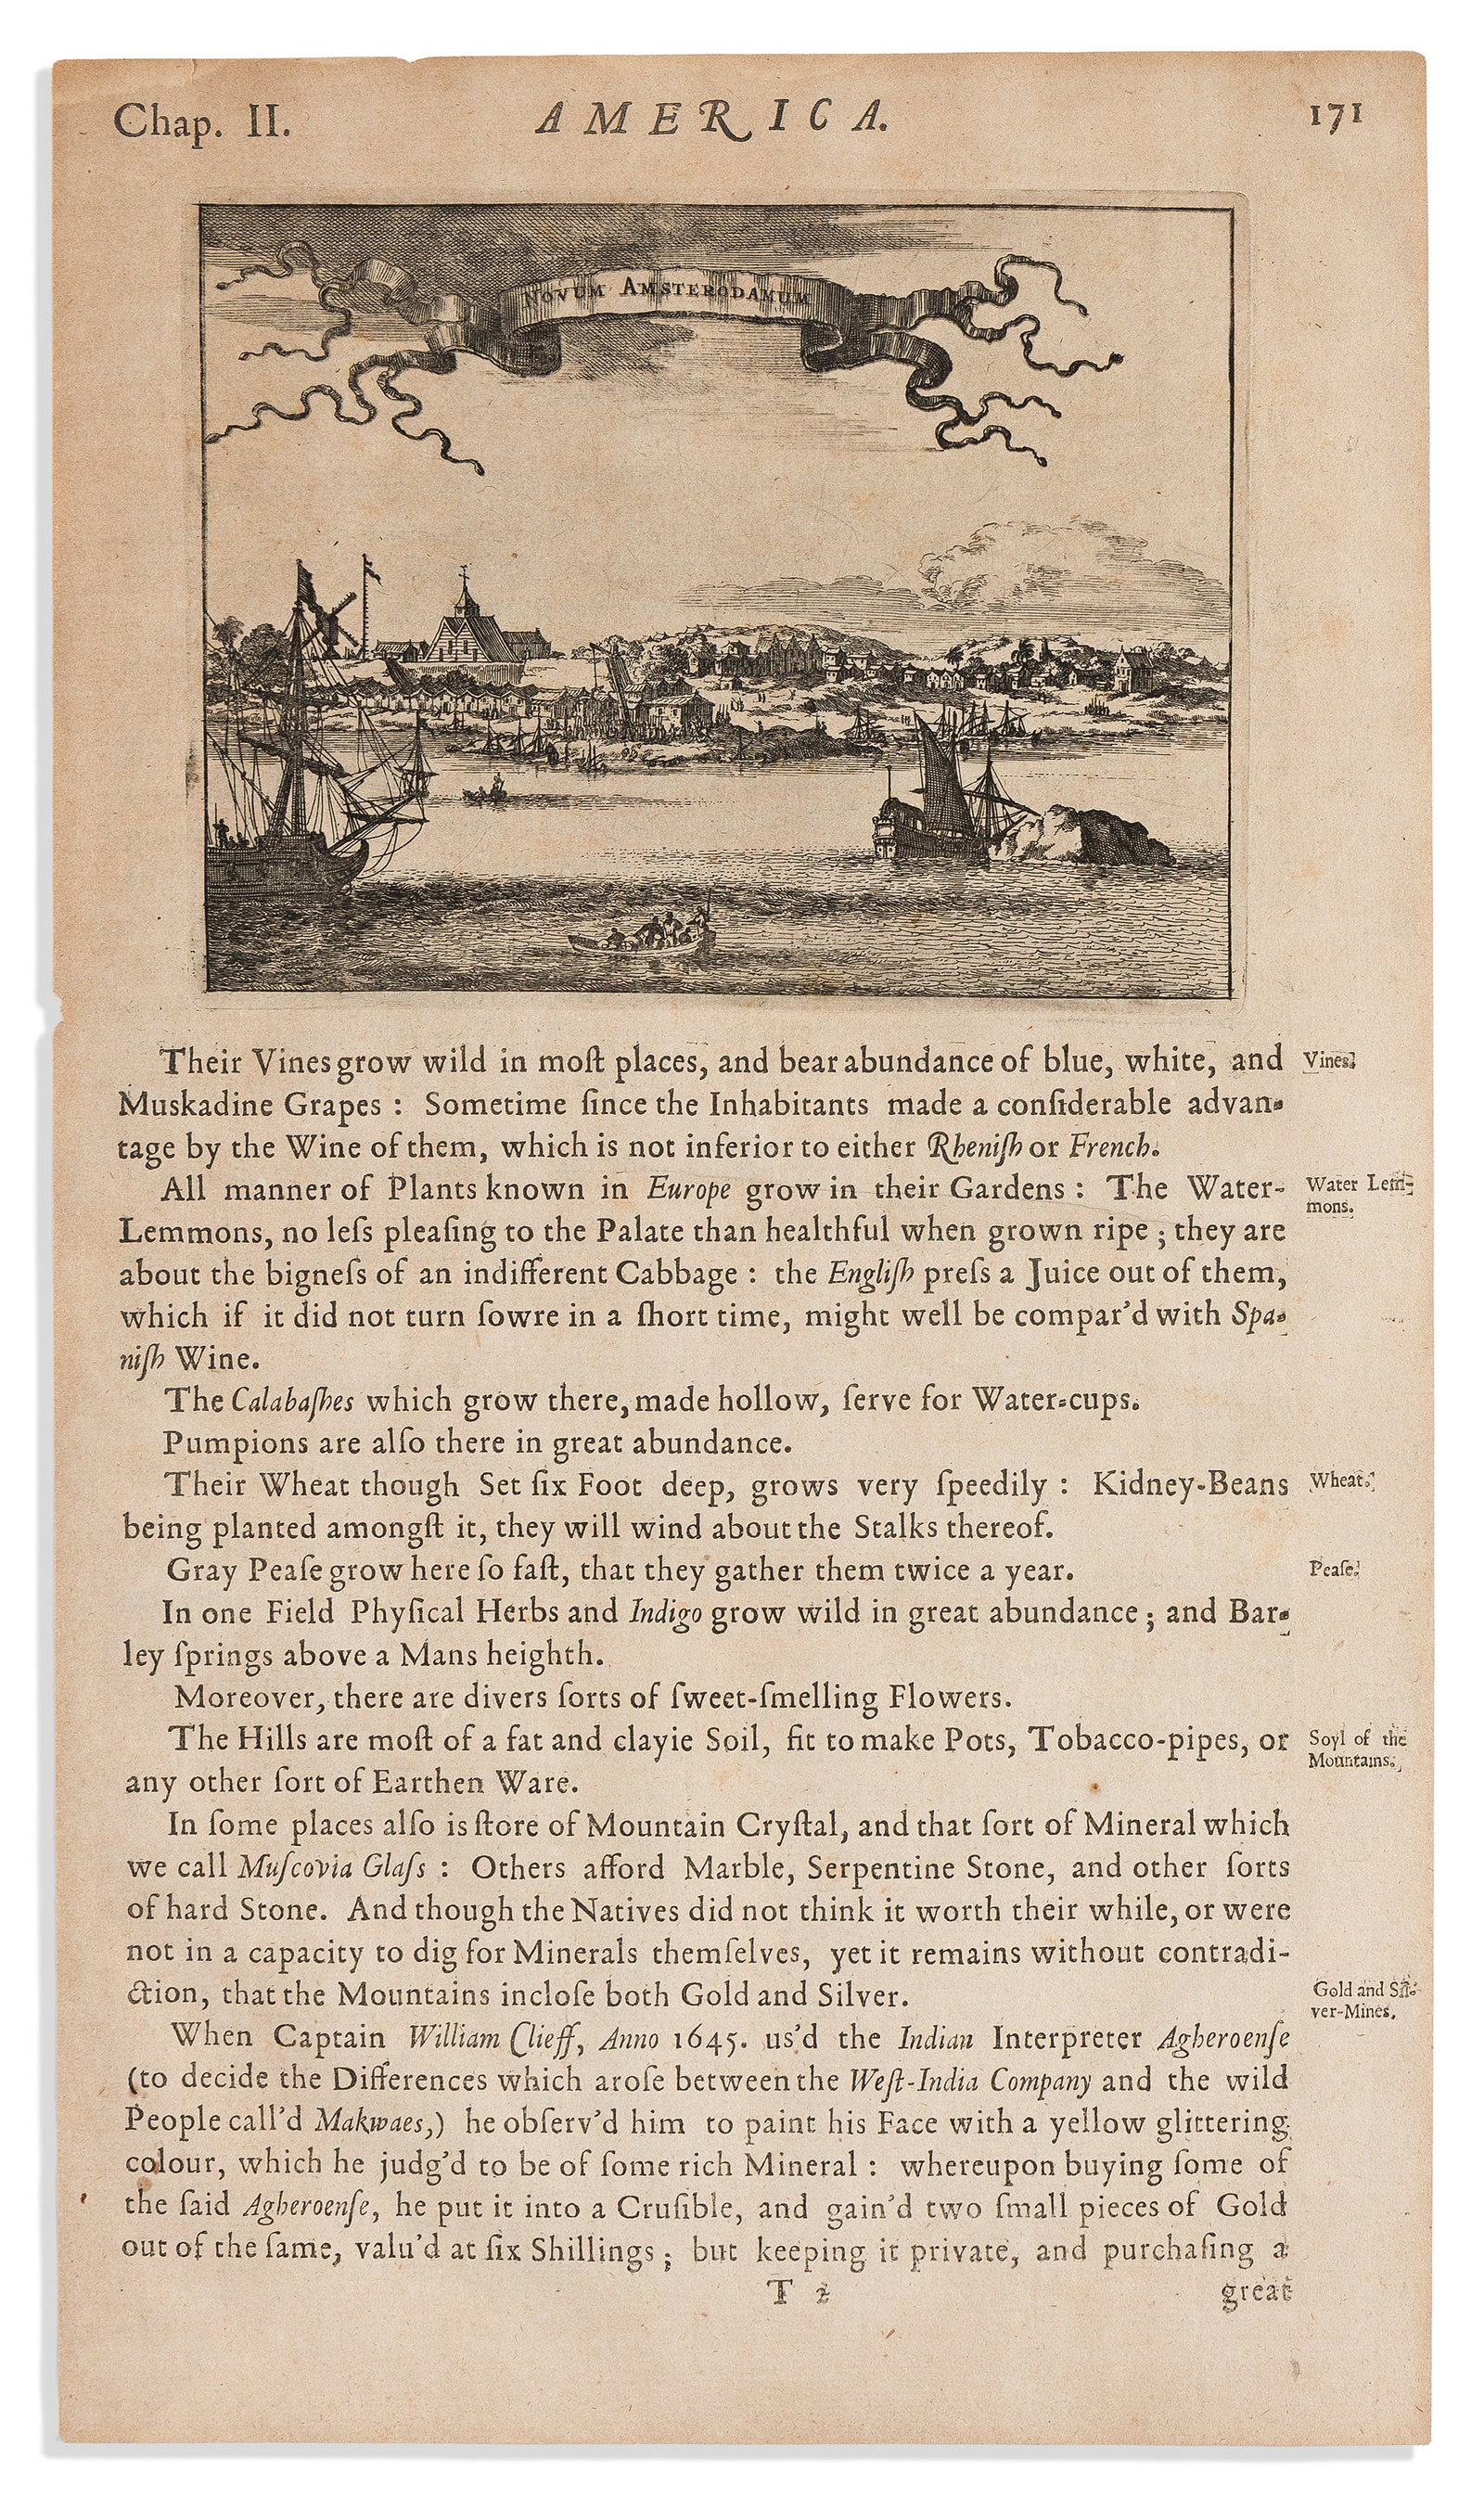 Chap. II. AMERICA. 171
NOVUM AMSTERODAMUM
Their Vines grow wild in moſt places, and bear abundance of blue, white, and
Vines.
Muskadine Grapes : Sometime ſince the Inhabitants made a conſiderable advan-
tage by the Wine of them, which is not inferior to either Rheniſh or French.
All manner of Plants known in Europe grow in their Gardens : The Water-
Water Lem-
mons.
Lemmons, no leſs pleaſing to the Palate than healthful when grown ripe ; they are
about the bigneſs of an indifferent Cabbage : the Engliſh preſs a Juice out of them,
which if it did not turn ſowre in a ſhort time, might well be compar'd with Spa-
niſh Wine.
The Calabaſhes which grow there, made hollow, ſerve for Water-cups.
Pumpions are alſo there in great abundance.
Their Wheat though Set ſix Foot deep, grows very ſpeedily : Kidney-Beans
Wheat.
being planted amongſt it, they will wind about the Stalks thereof.
Gray Peaſe grow here ſo faſt, that they gather them twice a year.
Peaſe.
In one Field Phyſical Herbs and Indigo grow wild in great abundance ; and Bar-
ley ſprings above a Mans heighth.
Moreover, there are divers ſorts of ſweet-ſmelling Flowers.
The Hills are moſt of a fat and clayie Soil, fit to make Pots, Tobacco-pipes, or
Soyl of the
Mountains.
any other ſort of Earthen Ware.
In ſome places alſo is ſtore of Mountain Cryſtal, and that ſort of Mineral which
we call Muſcovia Glaſs : Others afford Marble, Serpentine Stone, and other ſorts
of hard Stone. And though the Natives did not think it worth their while, or were
not in a capacity to dig for Minerals themſelves, yet it remains without contradi-
ction, that the Mountains incloſe both Gold and Silver.
Gold and Sil-
ver-Mines.
When Captain William Clieff, Anno 1645. us'd the Indian Interpreter Agheroenſe
(to decide the Differences which aroſe between the Weſt-India Company and the wild
People call'd Makwaes,) he obſerv'd him to paint his Face with a yellow glittering
colour, which he judg'd to be of ſome rich Mineral : whereupon buying ſome of
the ſaid Agheroenſe, he put it into a Cruſible, and gain'd two ſmall pieces of Gold
out of the ſame, valu'd at ſix Shillings ; but keeping it private, and purchaſing a
T 2 great